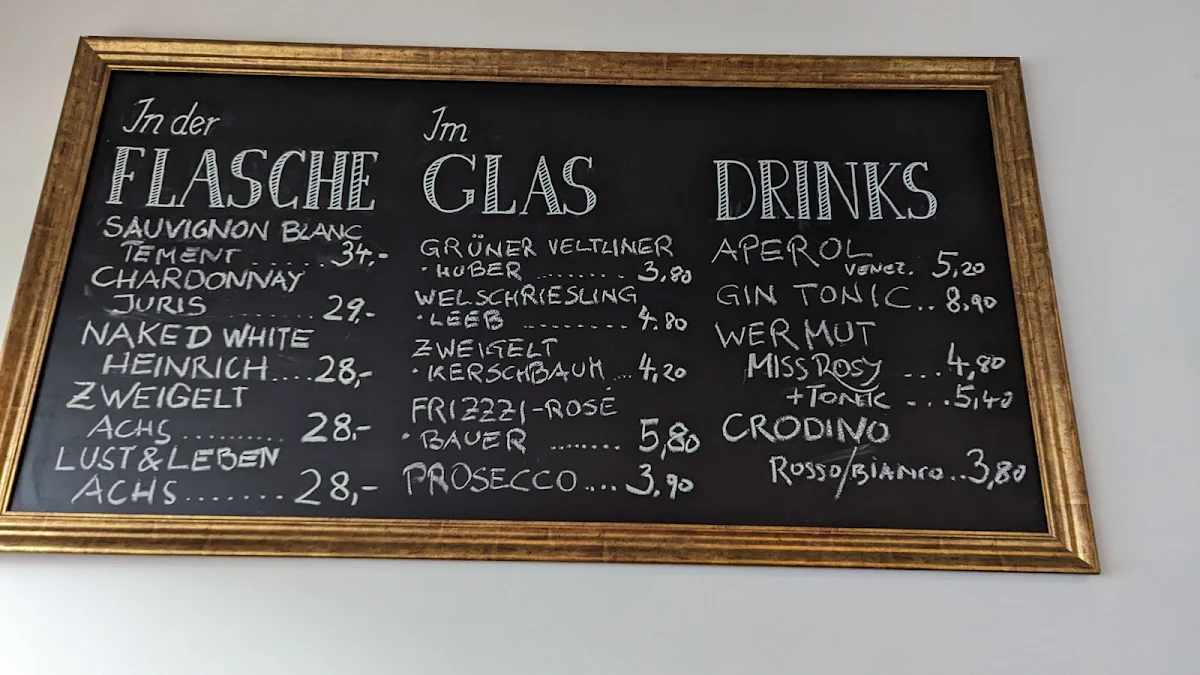 In der
FLASCHE
SAUVIGNON BLANC
TEMENT ...... 34,-
CHARDONNAY
JURIS ........ 29,-
NAKED WHITE
HEINRICH....28,-
ZWEIGELT
ACHS .......... 28,-
LUST & LEBEN
ACHS....... 28,-
Im
GLAS
GRÜNER VELTLINER
· HUBER ........ 3,80
WELSCHRIESLING
· LEEB ......... 4.80
ZWEIGELT
· KERSCHBAUM ... 4,20
FRIZZZI-ROSÉ
· BAUER ........ 5,80
PROSECCO .... 3,90
DRINKS
APEROL
VENEZ. 5,20
GIN TONIC.. 8,90
WERMUT
MISS ROSY ... 4,80
+TONIC ...5,40
CRODINO
ROSSO/BIANCO..3,80